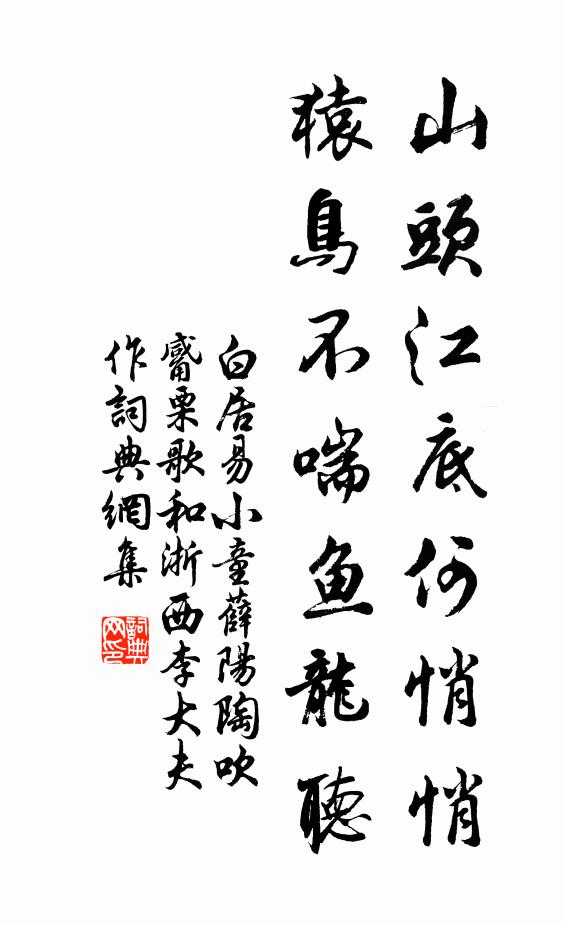 山頭江底何悄悄
猿鳥不喘魚龍聽
白居易小童薛陽陶吹
觱栗歌和浙西李大夫
作詞典網集
詞典
网印